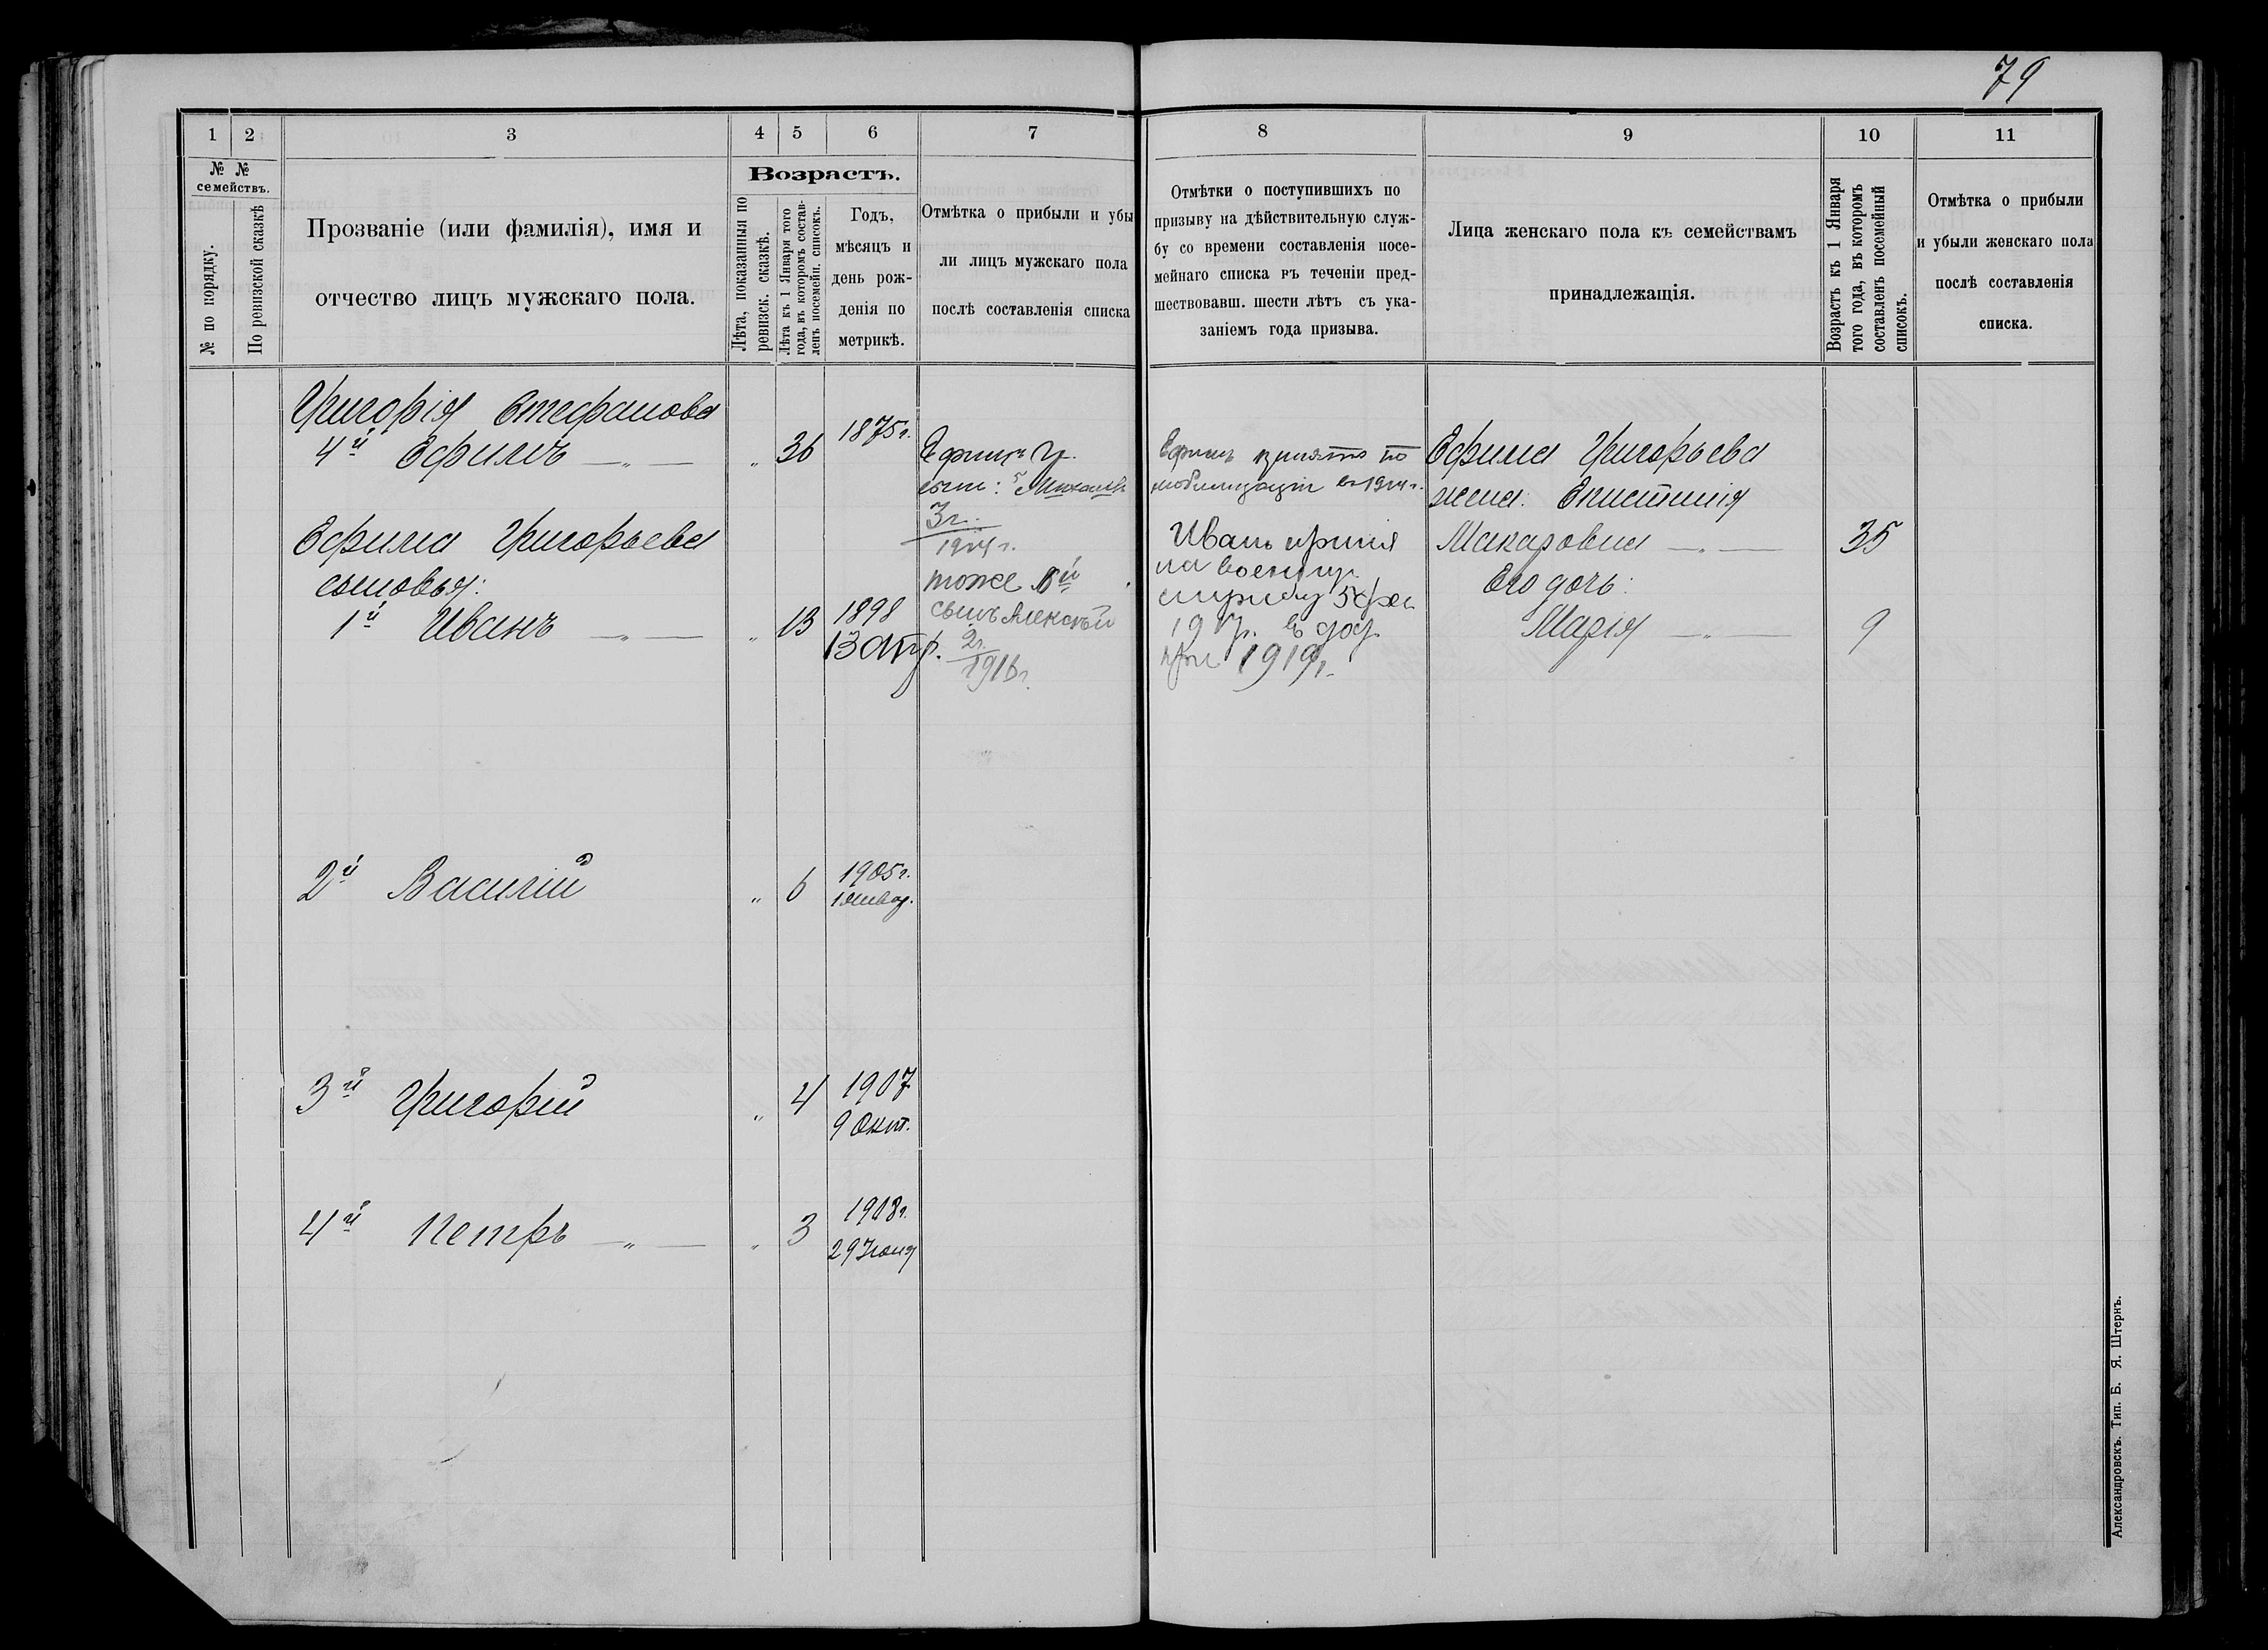 79
1
2
3
4
5
6
7
8
9
10
11
№ №
семействъ.
№ по порядку.
По ревизской сказкѣ
Прозваніе (или фамилія), имя и
отчество лицъ мужскаго пола.
Возрастъ.
Лѣта, показанныя по
ревизск. сказкѣ.
Лѣта къ 1 Января того
года, въ которомъ состав-
ленъ посемейн. списокъ.
Годъ,
мѣсяцъ и
день рож-
денія по
метрикѣ.
Отмѣтка о прибыли и убы
ли лицъ мужскаго пола
послѣ составленія списка
Отмѣтки о поступившихъ по
призыву на дѣйствительную служ-
бу со времени составленія посе-
мейнаго списка въ теченіи пред-
шествовавш. шести лѣтъ съ ука-
заніемъ года призыва.
Лица женскаго пола къ семействамъ
принадлежащія.
Возрастъ къ 1 Января
того года, въ которомъ
составленъ посемейный
списокъ.
Отмѣтка о прибыли
и убыли женскаго пола
послѣ составленія
списка.
Григорія Стефанова
4й Ефимъ — „ — „ 36 1875г.
Ефима Григорьева
сыновья:
1й Иванъ — „ — „ 13 1898
13 Апр.
2й Василій „ 6 1905г.
1 Январ.
3й Григорій „ 4 1907
9 Окт.
4й Петръ — „ — „ 3 1908г.
29 Іюня
Ефима Гр.
сынъ: 5 Михаилъ
3г.
1914г.
тоже 6й
сынъ Алексѣй
2г.
1916г.
Ефимъ принятъ по
мобилизаціи въ 1914г.
Иванъ принят
на военну
службу 5 фев
1917г. в
при 1919г.
Ефима Григорьева
жена: Епистимія
Макаровна — „ — 35
Его дочь:
Марія — „ — 9
Александровскъ. Тип. Б. Я. Штернъ.